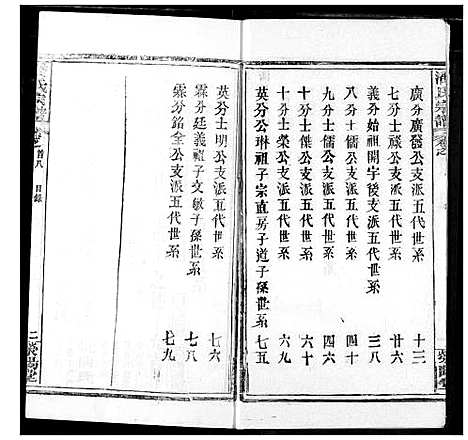 廣分廣發公支派五代世系 十三
七分士毅公支派五代世系 廿六
義分始祖開宇後支派五代世系 三八
八分十士閏公支派五代世系 四六
九分士儒公支派五代世系 六十
十分士榮公支派五代世系 六九
英分公琳祖子宗直房子道子孫世系 七五
英分士明公支派五代世系 七六
霖分廷義祖子文敏子孫世系 七八
霖分銘全公支派五代世系 七九
氏宗譜 卷之首八 目錄 二 滎陽堂